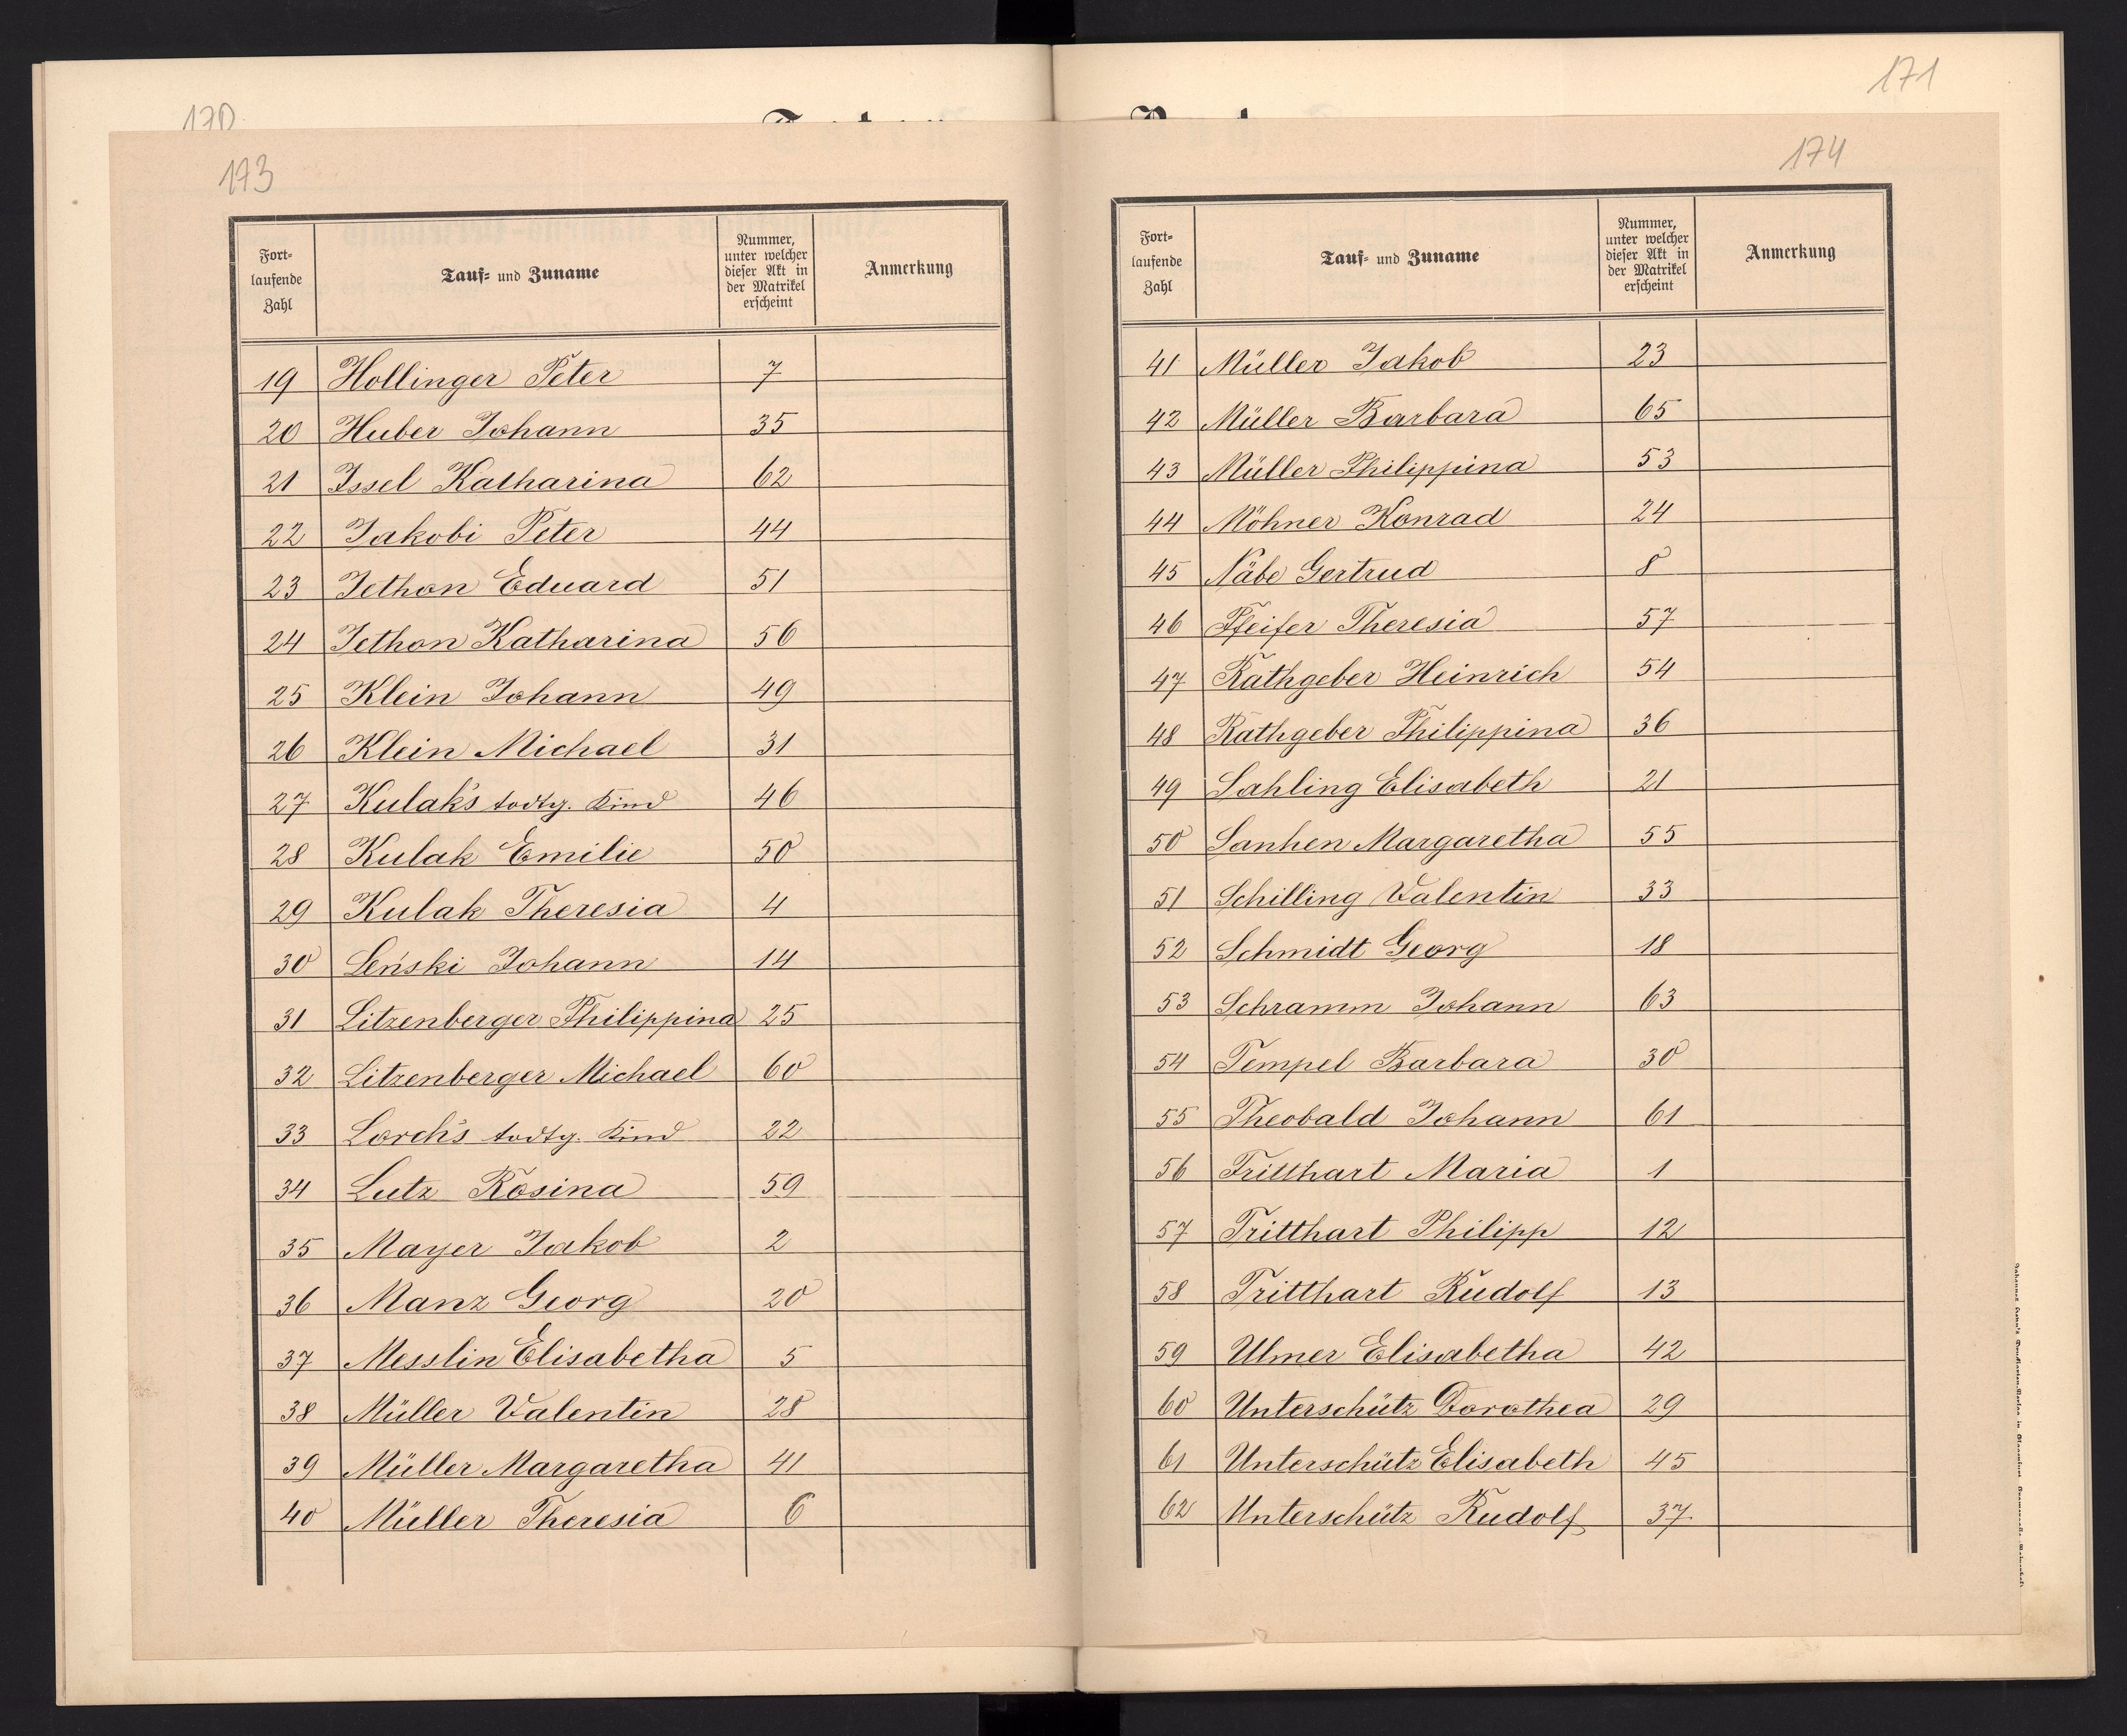 170
173
Fort-
laufende
Zahl
Tauf- und Zuname
Nummer,
unter welcher
dieser Akt in
der Matrikel
erscheint
Anmerkung
19 Hollinger Peter 7
20 Huber Johann 35
21 Issel Katharina 62
22 Jakobi Peter 44
23 Jethon Eduard 51
24 Jethon Katharina 56
25 Klein Johann 49
26 Klein Michael 31
27 Kulak's todtg. Kind 46
28 Kulak Emilie 50
29 Kulak Theresia 4
30 Leński Johann 14
31 Litzenberger Philippina 25
32 Litzenberger Michael 60
33 Lorch's todtg. Kind 22
34 Lutz Rosina 59
35 Mayer Jakob 2
36 Manz Georg 20
37 Messlin Elisabetha 5
38 Müller Valentin 28
39 Müller Margaretha 41
40 Müller Theresia 6
171
174
Fort-
laufende
Zahl
Tauf- und Zuname
Nummer,
unter welcher
dieser Akt in
der Matrikel
erscheint
Anmerkung
41 Müller Jakob 23
42 Müller Barbara 65
43 Müller Philippina 53
44 Möhner Konrad 24
45 Näbe Gertrud 8
46 Pfeifer Theresia 57
47 Rathgeber Heinrich 54
48 Rathgeber Philippina 36
49 Sahling Elisabeth 21
50 Sanhen Margaretha 55
51 Schilling Valentin 33
52 Schmidt Georg 18
53 Schramm Johann 63
54 Tempel Barbara 30
55 Theobald Johann 61
56 Tritthart Maria 1
57 Tritthart Philipp 12
58 Tritthart Rudolf 13
59 Ulmer Elisabetha 42
60 Unterschütz Dorothea 29
61 Unterschütz Elisabeth 45
62 Unterschütz Rudolf 37